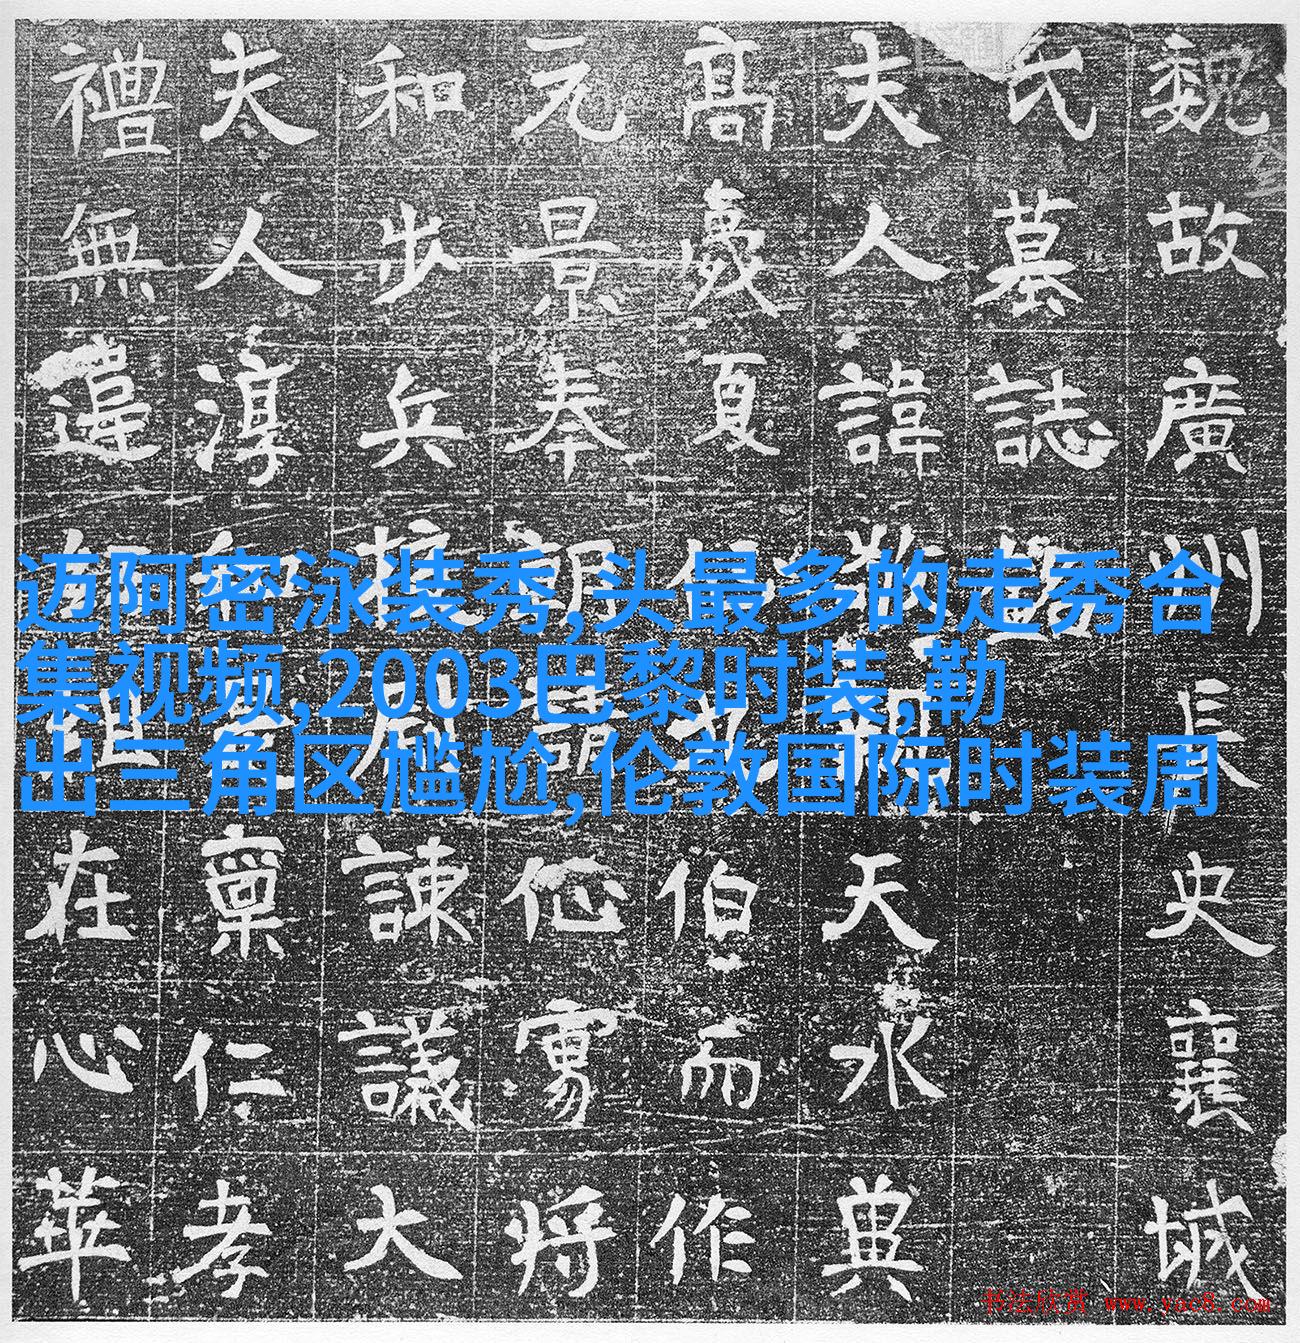 魏故廣州長史襄城
氏墓誌
夫人諱天水典
高夏伯而作
元景奉朝請将
和步兵校尉諫議大
夫人淳和稟仁孝
禮無違在心華
迈阿密泳装秀,头最多的走秀合
集视频,2003巴黎时装,勒
出三角区尴尬,伦敦国际时装周
书法欣赏 www.yac8.com